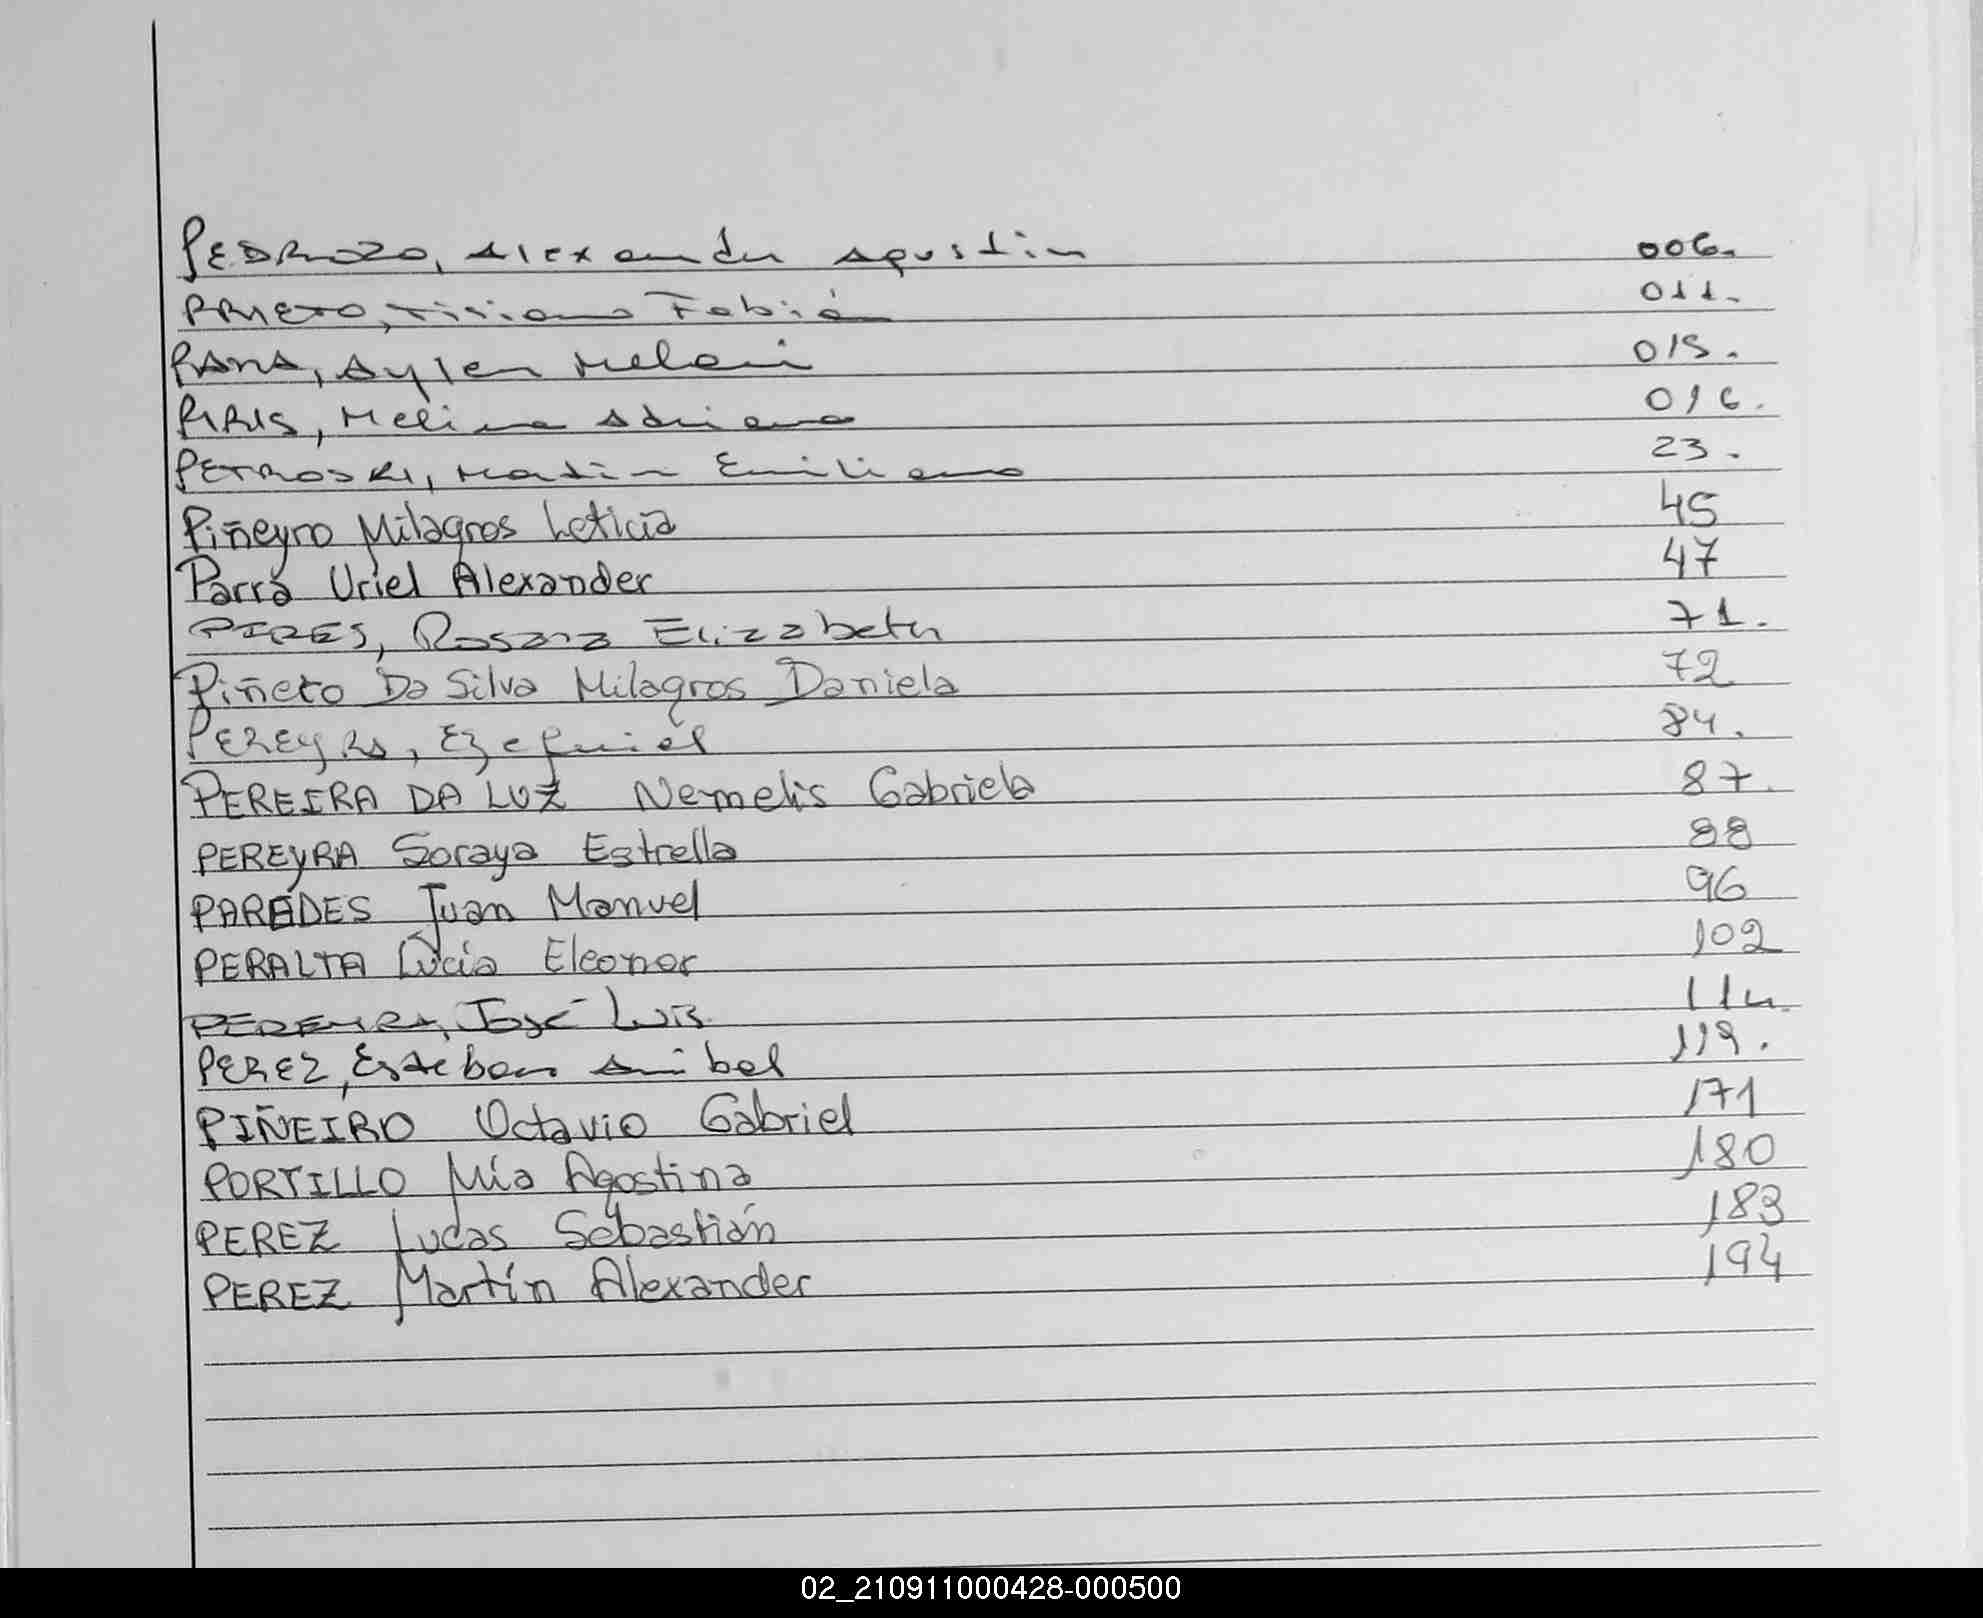 PEDROZO, Alexander Agustin 006.
PRIETO, Tiziano Fabián 011.
PANA, Aylen Melani 015.
PIRIS, Melina Adriana 016.
PETROSKI, Martin Emiliano 23.
Piñeyro Milagros Leticia 45
Parra Uriel Alexander 47
PIRES, Rosana Elizabeth 71.
Piñeto Da Silva Milagros Daniela 72
PEREYRA, Ezequiel 84.
PEREIRA DA LUZ Nemelis Gabriela 87.
PEREYRA Soraya Estrella 88
PAREDES Juan Manuel 96
PERALTA Lucía Eleonor 102
PEREYRA, José Luis 114.
PEREZ, Esteban Anibal 119.
PIÑEIRO Octavio Gabriel 171
PORTILLO Mía Agostina 180
PEREZ Lucas Sebastián 183
PEREZ Martín Alexander 194
02_210911000428-000500